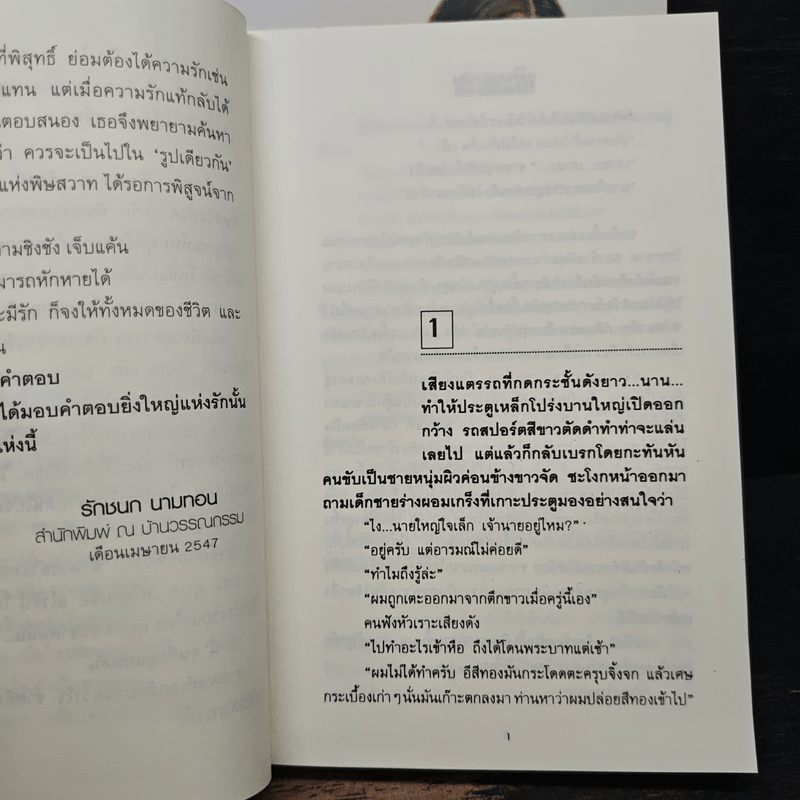 ที่พิสุทธิ์ ย่อมต้องได้ความรักเช่น
แทน แต่เมื่อความรักแท้กลับได้
ตอบสนอง เธอจึงพยายามค้นหา
ว่า ควรจะเป็นไปใน ‘รูปเดียวกัน’
แห่งพิษสวาท ได้รอการพิสูจน์จาก
ความชิงชัง เจ็บแค้น
มารถหักหายได้
ะมีรัก ก็จงให้ทั้งหมดของชีวิต และ
น
คำตอบ
ได้มอบคำตอบยิ่งใหญ่แห่งรักนั้น
แห่งนี้
รักชนก นามทอน
สำนักพิมพ์ ณ บ้านวรรณกรรม
เดือนเมษายน 2547
1
เสียงแตรรถที่กดกระชั้นดังยาว...นาน...
ทำให้ประตูเหล็กโปร่งบานใหญ่เปิดออก
กว้าง รถสปอร์ตสีขาวตัดดำทำท่าจะแล่น
เลยไป แต่แล้วก็กลับเบรกโดยกะทันหัน
คนขับเป็นชายหนุ่มผิวค่อนข้างขาวจัด ชะโงกหน้าออกมา
ถามเด็กชายร่างผอมเกร็งที่เกาะประตูมองอย่างสนใจว่า
“ไง...นายใหญ่ใจเล็ก เจ้านายอยู่ไหม?”
“อยู่ครับ แต่อารมณ์ไม่ค่อยดี”
“ทำไมถึงรู้ล่ะ”
“ผมถูกเตะออกมาจากตึกขาวเมื่อครู่นี้เอง”
คนฟังหัวเราะเสียงดัง
“ไปทำอะไรเข้าหือ ถึงได้โดนพระบาทแต่เช้า”
“ผมไม่ได้ทำครับ อีสีทองมันกระโดดตะครุบจิ้งจก แล้วเศษ
กระเบื้องเก่า ๆ นั่นมันเก๊าะตกลงมา ท่านหาว่าผมปล่อยสีทองเข้าไป”
1